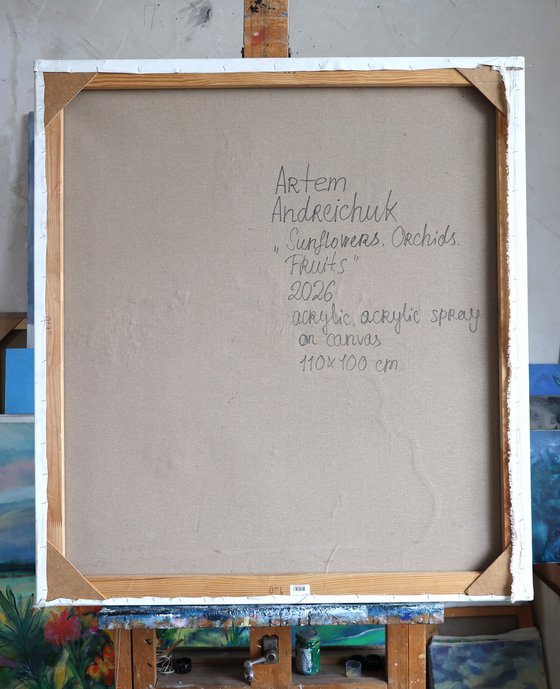 Artem
Andreichuk
„Sunflowers. Orchids.
Fruits"
2026
acrylic, acrylic spray
on canvas
110x100 cm
001